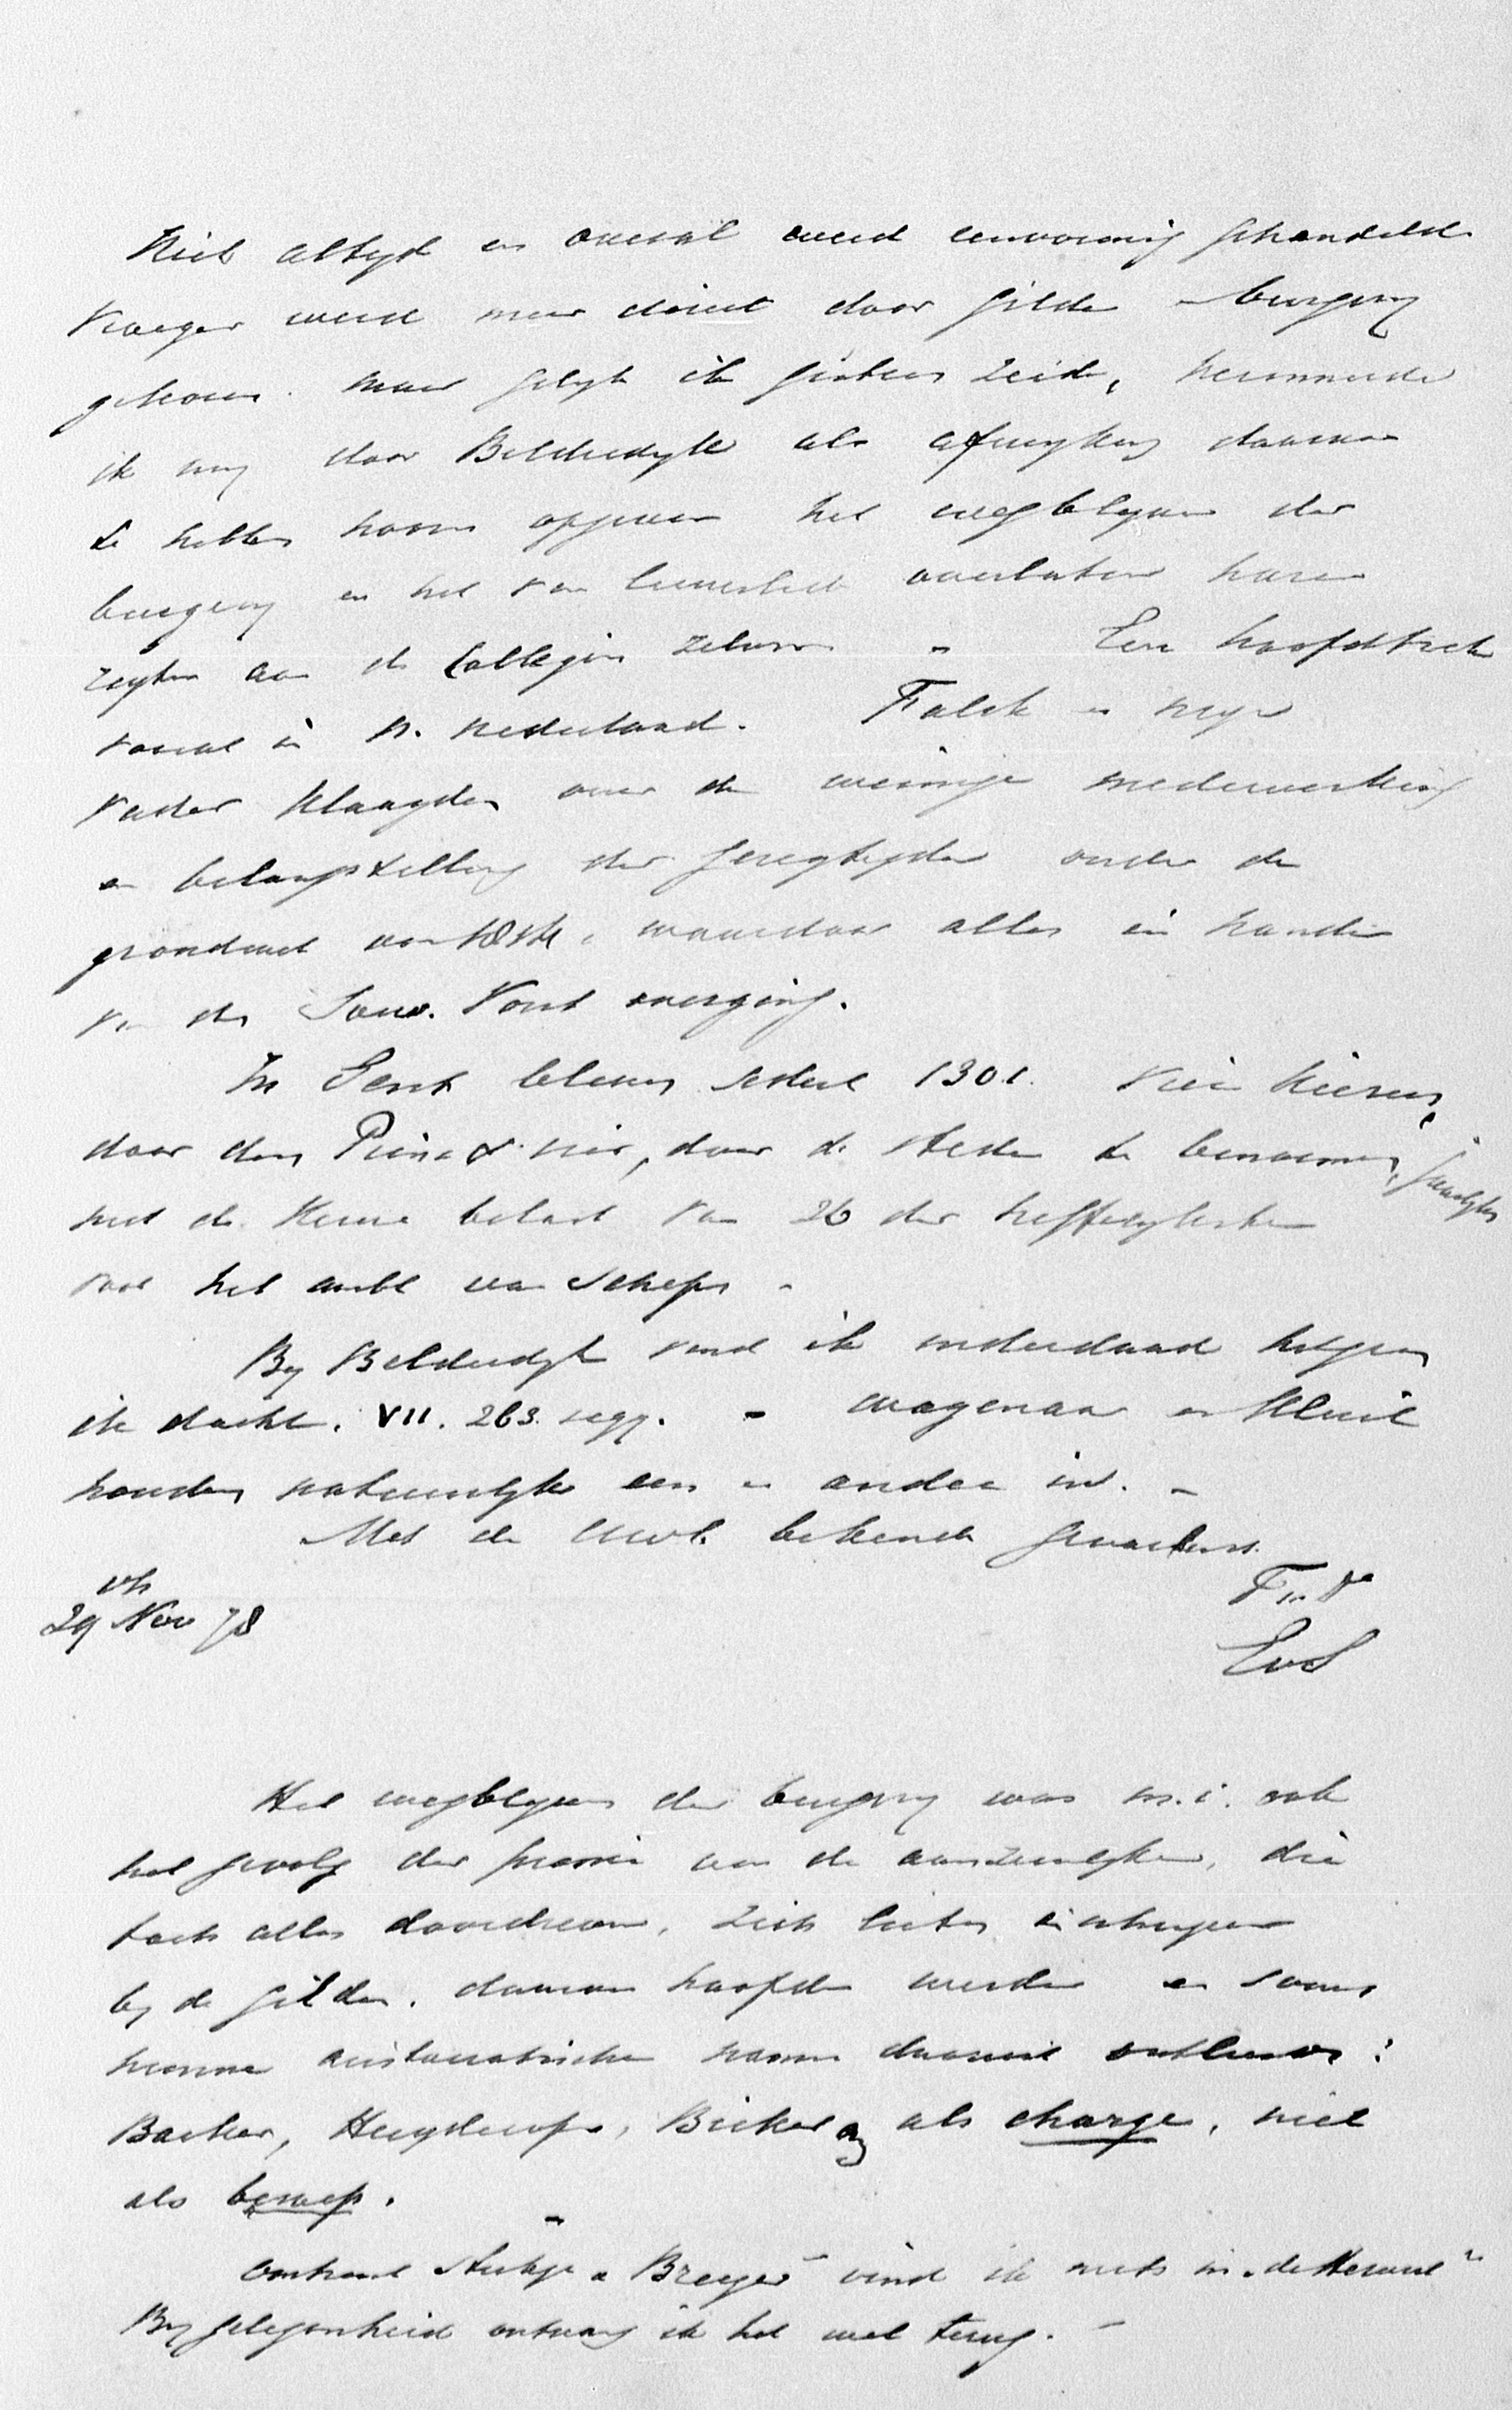 Niet altyd en overal werd eenvormig gehandeld.
Vroeger werd meer direct door gilden – burgery
gekozen. maar gelyk ik gisteren zeide, herinnerde
ik my door Bilderdyk als afwyking daarvan
te hebben hooren opgeven het wegblyven der
burgery en het van lieverlede overlaten harer
regten aan de Collegien zelven – Een hoofdtrek
vooral in N. Nederland. Falck en myn
vader klaagden over de weinige medewerking
en belangstelling der geregtigden onder de
grondwet van 1814, waardoor alles in handen
van den Souv. Vorst overging.
In Gent bleven sedert 1301. vier kiezers,
door den Prins & vier, door de steden te benoemen, jaarlyks
met de keuze belast van 26 der
voor het ambt van schepen –
By Bilderdyk vond ik inderdaad hetgeen
ik dacht. VII. 263. seqq. – Wagenaar en Kluit
houden natuurlyk een en ander in. –
Met de UwE bekende gevoelens.
vh
29 Nov 78
EvS
Het wegblyven der burgery was m.i. ook
het gevolg der pressie van de aanzienlyken, die
toch alles doordreven, zich lieten inschryven
by de gilden, daarvan hoofden werden en soms
hunne aristocratische namen daaruit ontleenen:
Backer, Huydecoper, Bicker als charge, niet
als beroep.
–
Omtrent Breyer vind ik niets in „de Heraut"
By gelegenheid ontvang ik het wel terug. –